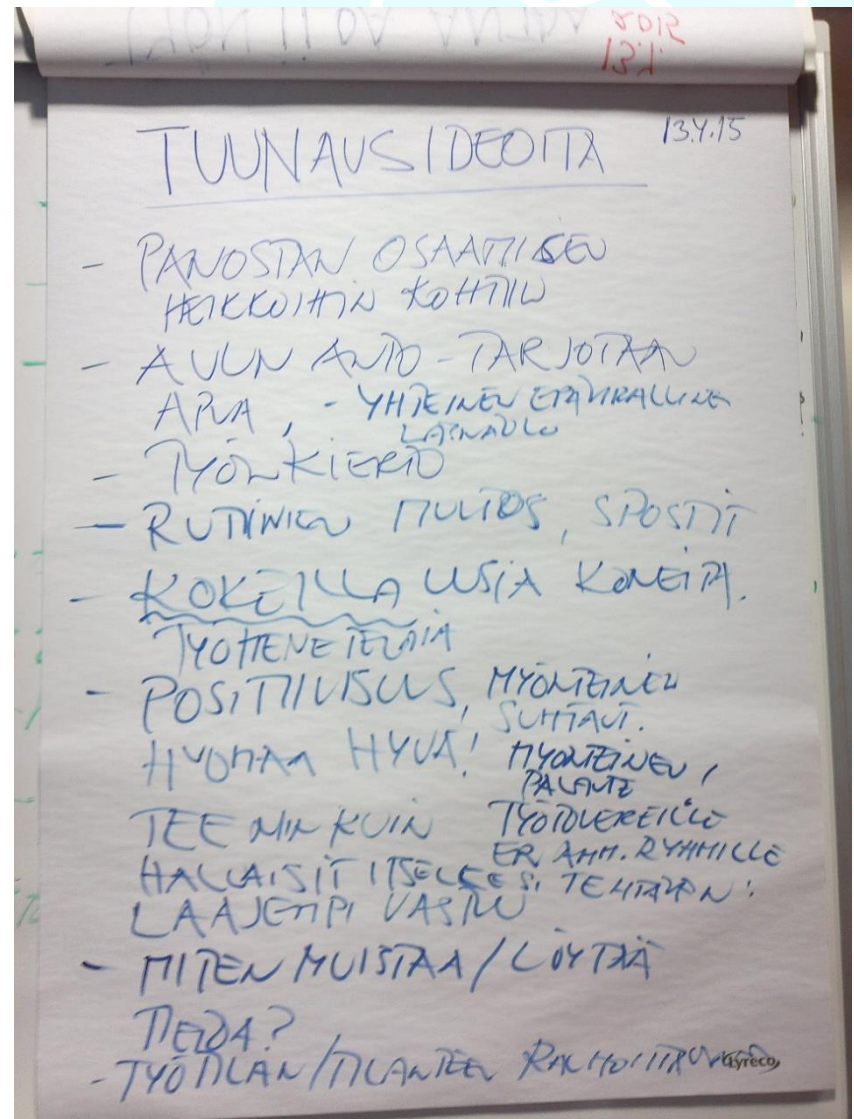 2015
13.4
TUUNAUSIDEOITA 13.4.15
- PANOSTAN OSAAMISEN
HEIKKOIHIN KOHTIIN
- AVUN ANTO - TARJOTAAN
APUA, - YHTEINEN EPÄVIRALLINEN
LÄSNÄOLO
- TYÖNKIERTO
- RUTIINIEN MUUTOS, SPOSTIT
- KOKEILLA UUSIA KONEITA.
TYÖMENETELMIÄ
- POSITIIVISUUS, MYÖNTEINEN
SUHTAUT.
HUOMAA HYVÄ! MYÖNTEINEN
PALAUTE
TEE NIIN KUIN TYÖTOVEREILLE
ER. AMM. RYHMILLE
HALUAISIT ITSELLESI TEHTÄVÄN!
LAAJEMPI VASTUU
- MITEN MUISTAA / LÖYTÄÄ
TIETOA?
- TYÖTILAN / TILANTEEN RAUHOITTAMINEN